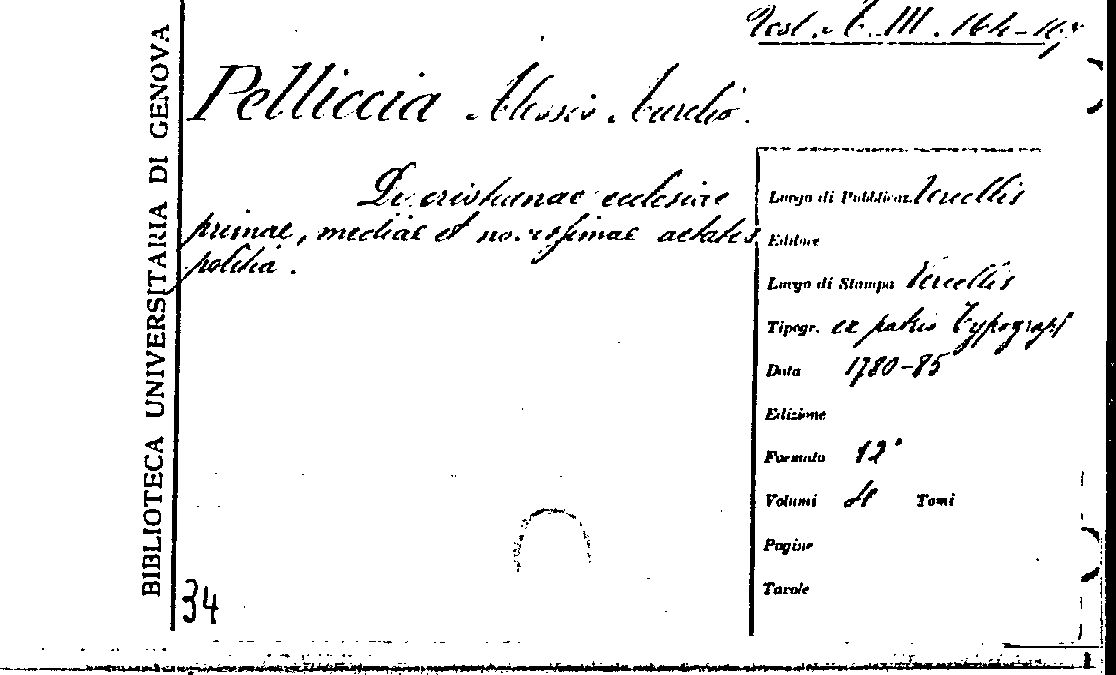 BIBLIOTECA UNIVERSITARIA DI GENOVA
A. III. 164-167
Pelliccia Alessio Aurelio.
De cristianae ecclesiae
primae, mediae et novissimae aetatis
politia.
Luogo di Pubblicaz. Vercellis
Editore
Luogo di Stampa Vercellis
Tipogr. ex patrio Typograph
Data 1780-85
Edizione
Formato 12°
Volumi 4 Tomi
Pagine
Tavole
34